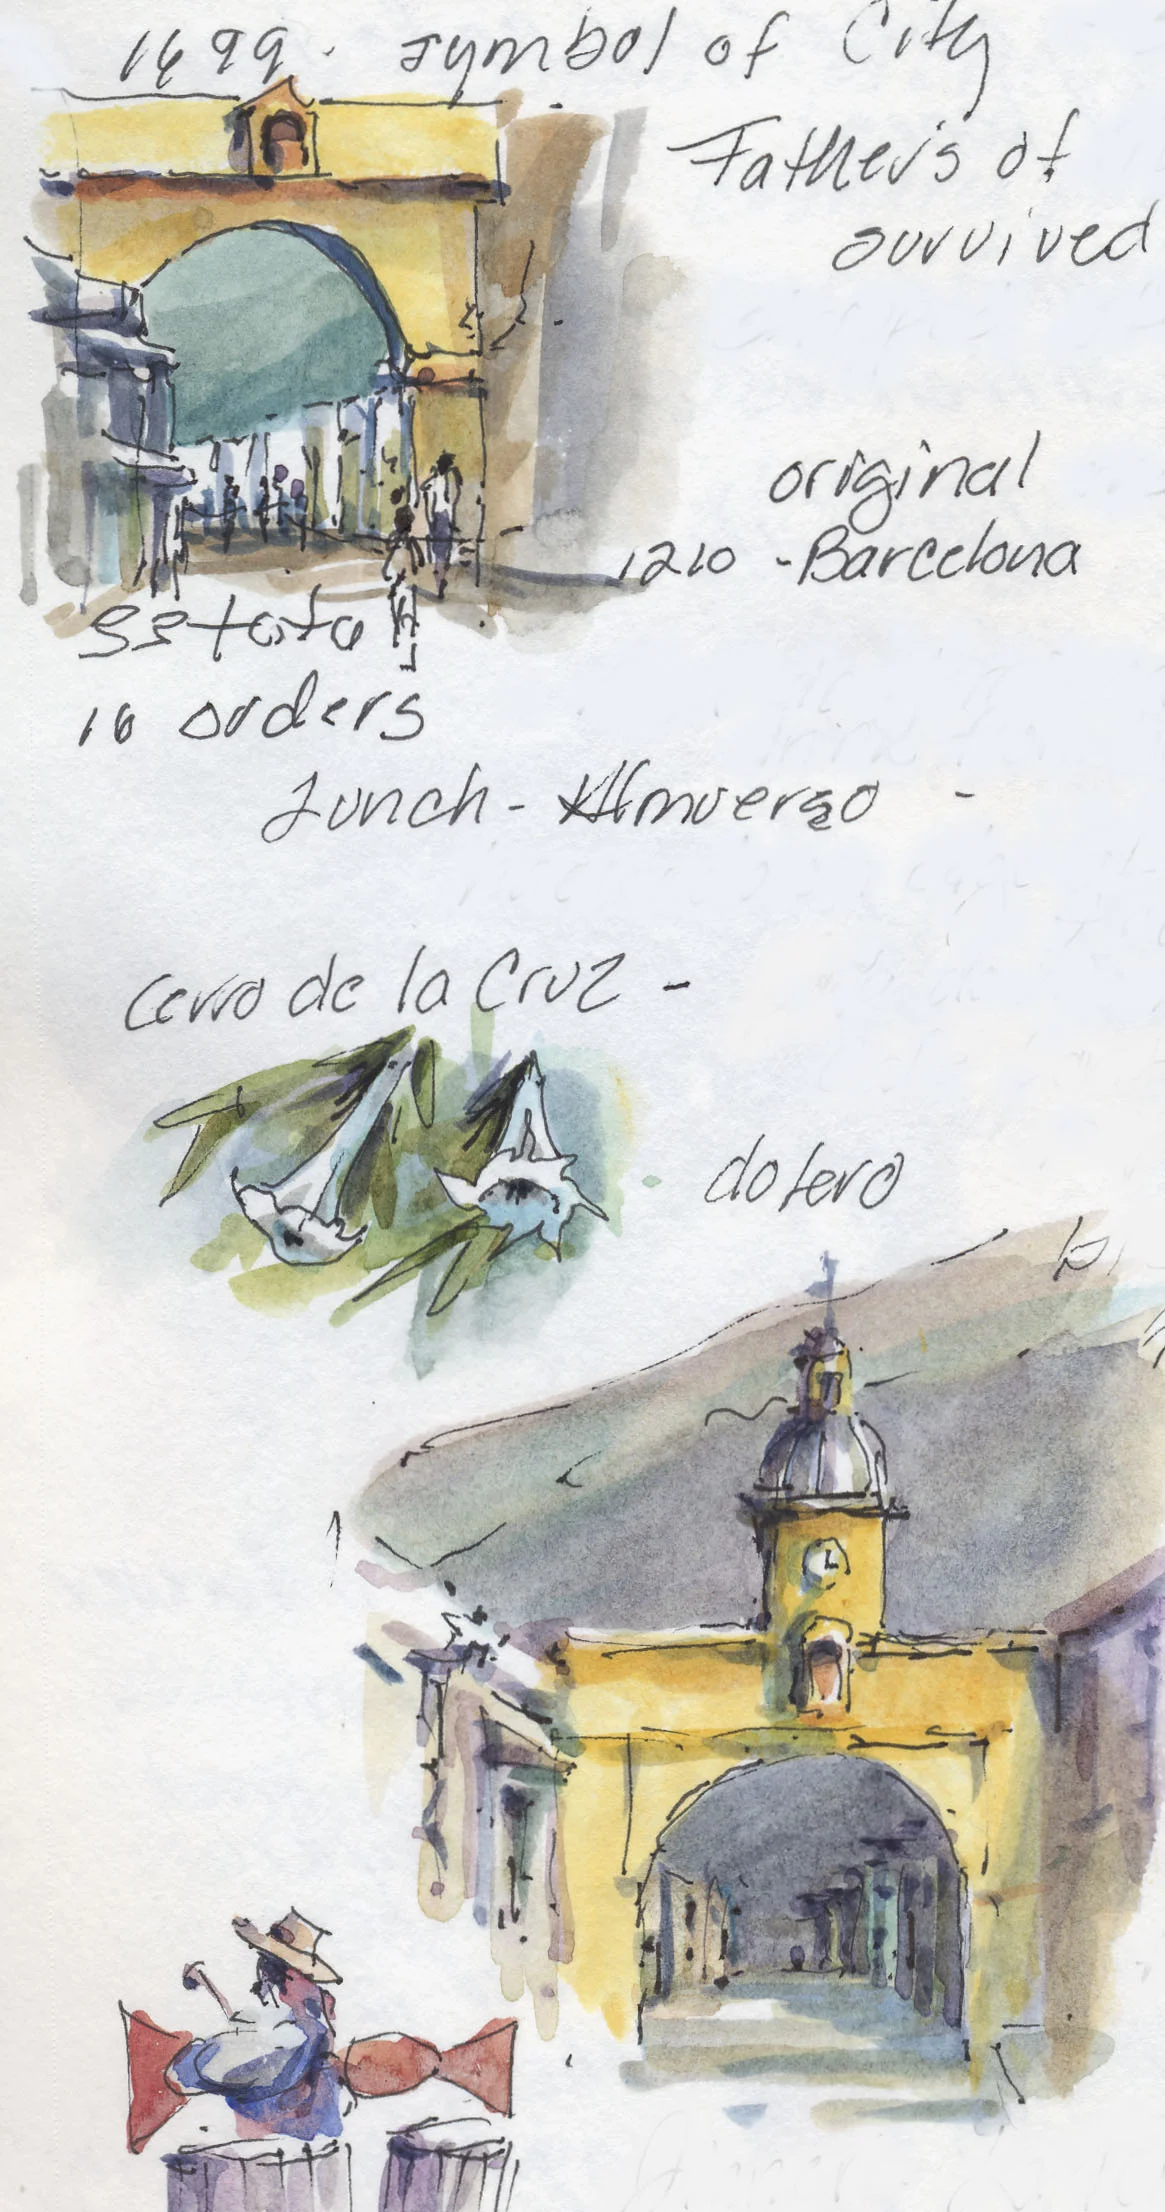 1699. symbol of City
Fathers of
survived
original
1210 - Barcelona
16 orders
Lunch - Almuerzo -
Cerro de la Cruz -